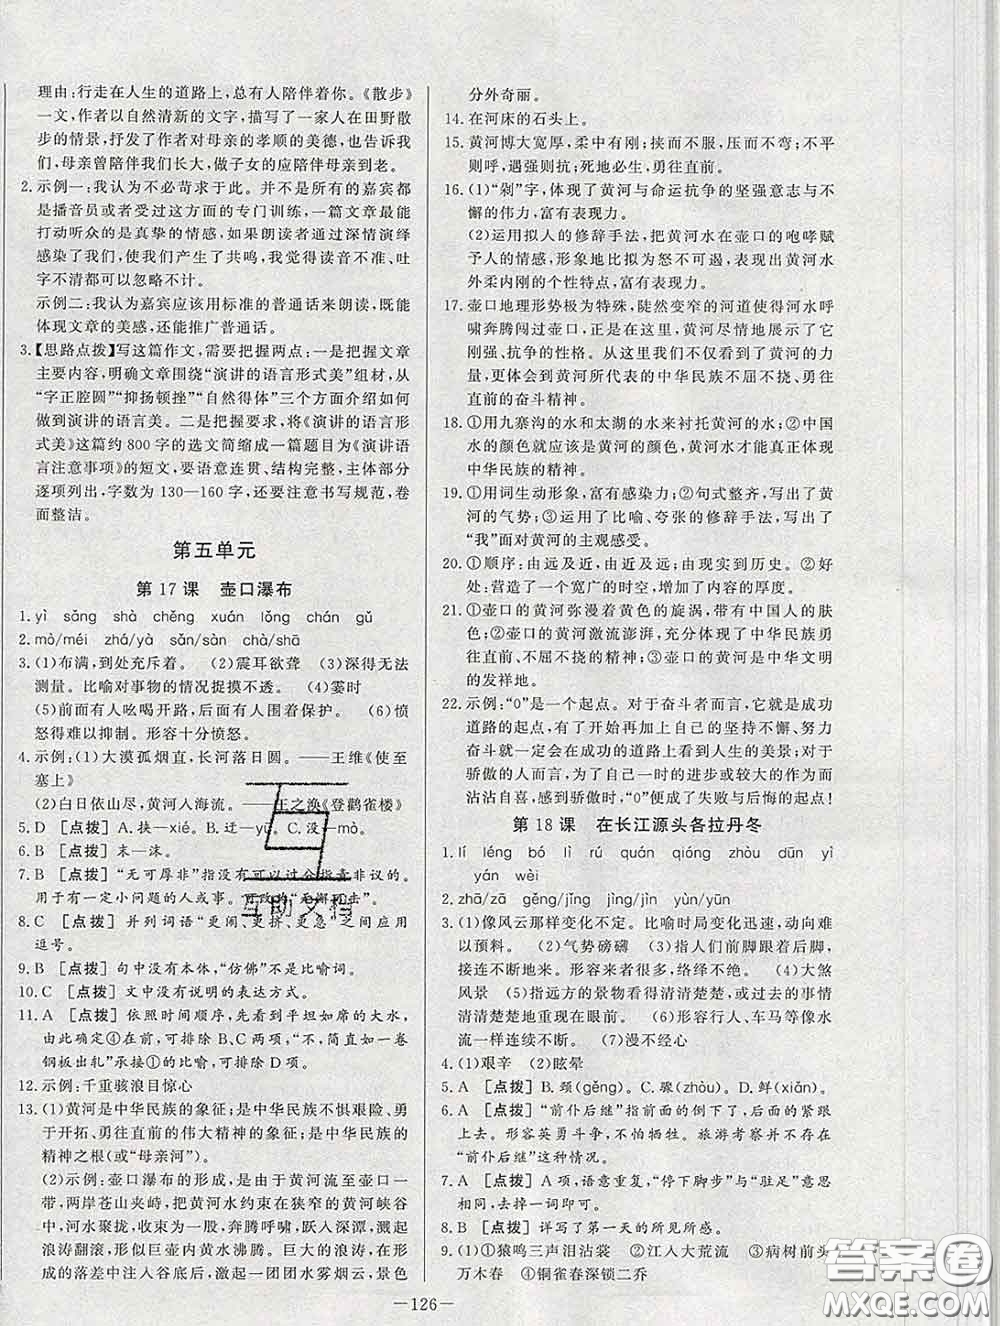 理由:行走在人生的道路上,总有人陪伴着你。《散步》
一文,作者以自然清新的文字,描写了一家人在田野散
步的情景,抒发了作者对母亲的孝顺的美德,也告诉我
们,母亲曾陪伴我们长大,做子女的应陪伴母亲到老。
2. 示例一:我认为不必苛求于此。并不是所有的嘉宾都
是播音员或者受过这方面的专门训练,一篇文章最能
打动听众的是真挚的情感,如果朗读者通过深情演绎
感染了我们,使我们产生了共鸣,我觉得读音不准、吐
字不清都可以忽略不计。
示例二:我认为嘉宾应该用标准的普通话来朗读,既能
体现文章的美感,还能推广普通话。
3.【思路点拨】写这篇作文,需要把握两点:一是把握文章
主要内容,明确文章围绕“演讲的语言形式美”组材,从
“字正腔圆”“抑扬顿挫”“自然得体”三个方面介绍如何
做到演讲的语言美。二是把握要求,将《演讲的语言形
式美》这篇约 800 字的选文简缩成一篇题目为《演讲语
言注意事项》的短文,要语意连贯、结构完整,主体部分
逐项列出,字数为 130—160 字,还要注意书写规范,卷
面整洁。
第五单元
第 17 课 壶口瀑布
1. yì sǎng shà chěng xuán lǒng chán gǔ
2. mò/méi zhá/yà sǎn/sàn chà/shā
3. (1)布满,到处充斥着。 (2)震耳欲聋 (3)深得无法
测量。比喻对事物的情况捉摸不透。 (4)霎时
(5)前面有人吆喝开路,后面有人围着保护。 (6)愤
怒得难以抑制。形容十分愤怒。
4. 示例:(1)大漠孤烟直,长河落日圆。——王维《使至
塞上》
(2)白日依山尽,黄河入海流。——王之涣《登鹳雀楼》
5. D [点拨] A. 挟—xié。B. 迂—yū。C. 没—mò。
6. B [点拨] 末—沫。
7. B [点拨] “无可厚非”指没有可以过分指责非议的。
用于有一定小问题的人或事。可改成“无懈可击”。
8. C [点拨] 并列词语“更闹、更挤、更急”之间应用
逗号。
9. B [点拨] 句中没有本体,“仿佛”不是比喻词。
10. C [点拨] 文中没有说明的表达方式。
11. A [点拨] 依照时间顺序,先看到平坦如席的大水,
由此确定④在前,可排除 B、C 两项,“于是犹如一卷
钢板出轧”承接①的比喻,可排除 D 项。
12. 示例:千重骇浪目惊心
13. (1)黄河是中华民族的象征;是中华民族不惧艰险、勇
于开拓、勇往直前的伟大精神的象征;是中华民族的
精神之根(或“母亲河”)。
(2)示例:壶口瀑布的形成,是由于黄河流至壶口一
带,两岸苍山夹峙,把黄河水约束在狭窄的黄河峡谷
中,河水聚拢,收束为一股,奔腾呼啸,跃入深潭,溅起
浪涛翻滚,形似巨壶内黄水沸腾。巨大的浪涛,在形成
的落差中注入谷底后,激起一团团水雾烟云,景色
分外奇丽。
14. 在河床的石头上。
15. 黄河博大宽厚,柔中有刚;挟而不服,压而不弯;不平
则呼,遇强则抗;死地必生,勇往直前。
16. (1)“剁”字,体现了黄河与命运抗争的坚强意志与不
懈的伟力,富有表现力。
(2)运用拟人的修辞手法,把黄河水在壶口的咆哮赋
予人的情感,形象地比拟为怒不可遏,表现了黄河水
外柔内刚的个性特点,富有表现力。
17. 壶口地理形势极为特殊,陡然变窄的河道使得河水呼
啸奔腾闯过壶口,正是在这里,黄河尽情地展示了它
刚强、抗争的性格。从这里,我们不仅看到了黄河的勇
猛,更看到了黄河所代表的中华民族不屈不挠、勇往
直前的奋斗精神。
18. ①用九寨沟的水和太湖的水来衬托黄河的水;②中国
水的颜色就应该是黄河的颜色,黄河水才能真正体现
中华民族的精神。
19. ①用词生动形象,富有感染力;②句式整齐,写出了黄
河的气势;③运用了比喻、夸张的修辞手法,写出了
“我”面对黄河的主观感受。
20. ①顺序:由远及近,由近及远,由现实到历史。②好
处:营造了一个宽广的时空,增加了内容的厚度。
21. ①壶口的黄河弥漫着黄色的旋涡,带有中国人的肤
色;②壶口的黄河激流澎湃,最能体现了中华民族勇往
直前、不屈不挠的精神;③壶口的黄河是中华文明
的发祥地。
22. 示例:“0”是一个起点。对于奋斗者而言,它就是成功
道路的起点,有了开始再加上自己的坚持不懈、努力
奋斗就一定会在成功的道路上看到人生的美景;对于
骄傲的人而言,为了自己一时的进步或者较大的进而
沾沾自喜,感到骄傲时,“0”便成了失败与后悔的起点!
第 18 课 在长江源头各拉丹冬
1. lí léng bó lì rú quán qióng zhòu dūn yì
yán wèi
2. zhā/zhá gěng jīng/jìng jìn yùn/yūn
3. (1)像风云那样变化不定。比喻时局变化迅速,动向难
以预料。 (2)气势磅礴 (3)指人们前脚跟着后脚,
接连不断地来。形容来的人很多,络绎不绝。 (4)大煞
风景 (5)指远方的景物看得清清楚楚,或过去的事情
清清楚楚地重新出现在眼前。 (6)形容行人、车马等像水
流一样连续不断。 (7)漫不经心
4. (1)艰辛 (2)眩晕
5. A [点拨] B. 颈(gěng)。C. 骤(zhòu)。D. 鲜(xiǎn)。
6. A [点拨] “前仆后继”指前面的倒下,后面的紧跟
上去。形容英勇斗争,不怕牺牲。旅游考察并不存在
“前仆后继”这种情况。
7. A [点拨] A 项,语意重复,“停下脚步”与“驻足”意思
相同,去掉一词即可。
8. B [点拨] 详写了第一天的所见所感。
9. (1)①猿鸣三声泪沾裳 ②江入大荒流 ③病树前头
万木春 ④铜雀春深锁二乔
—126—
互助文档
答案圈
MXQE.COM